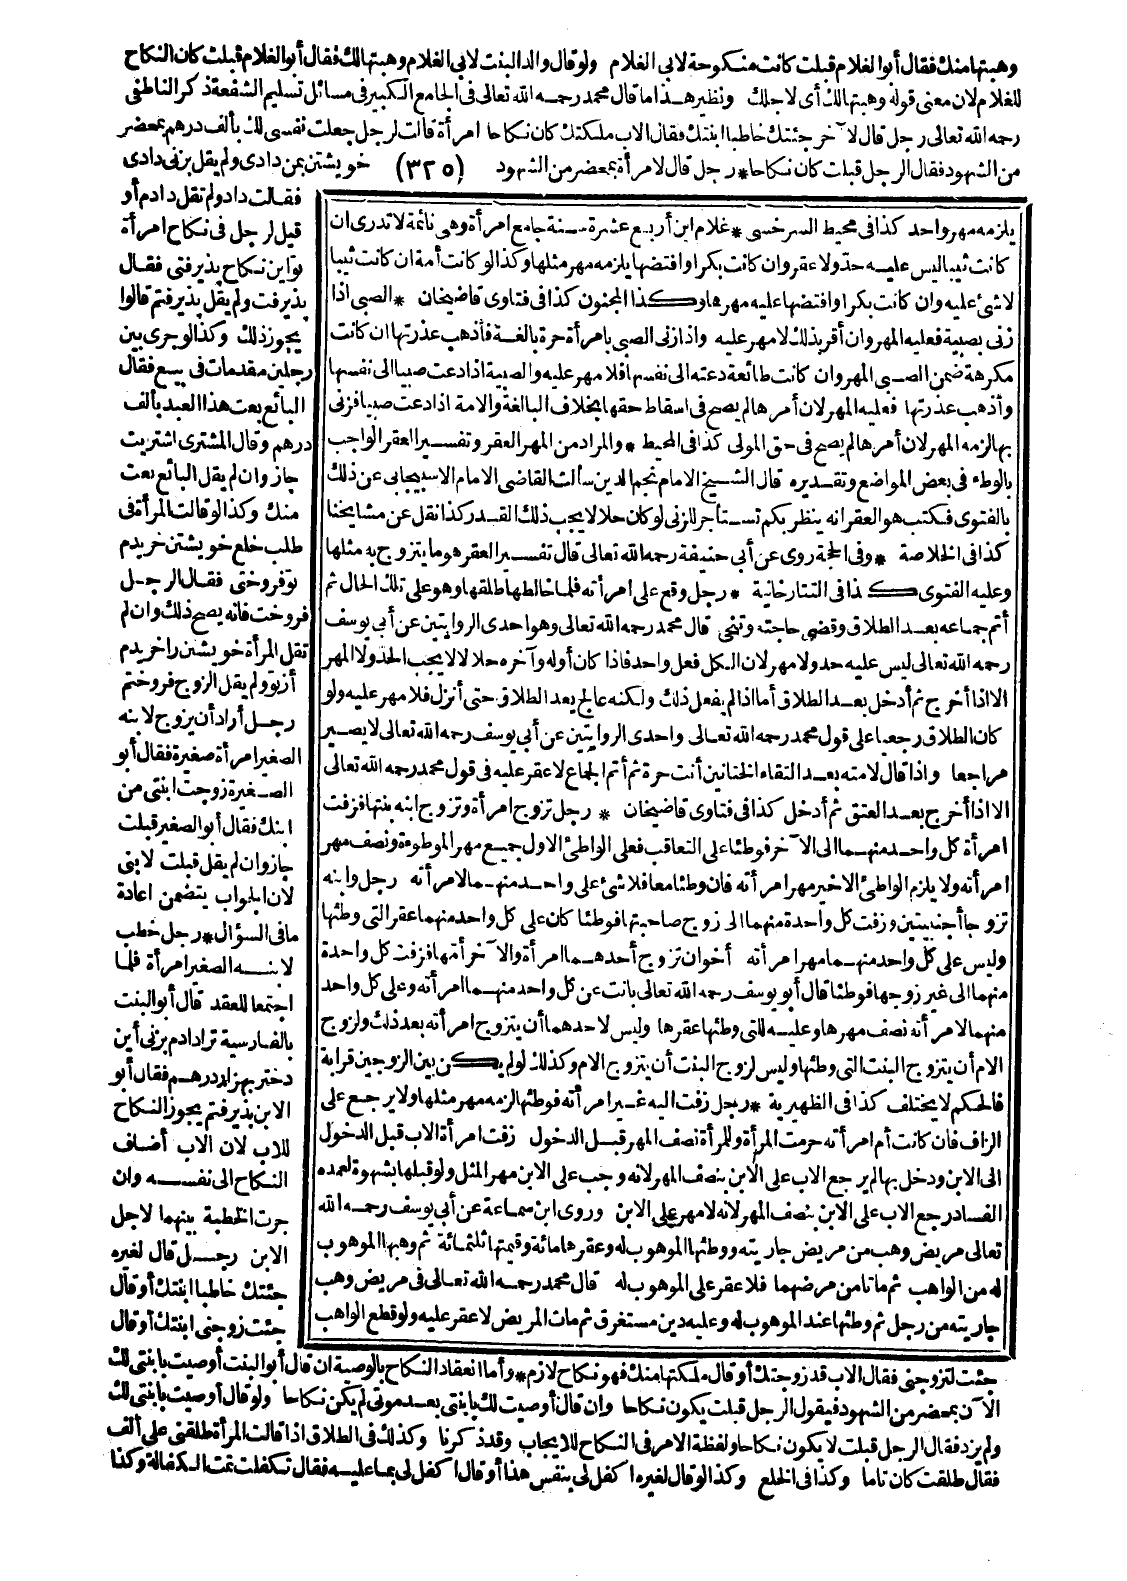 وهبتها منك فقال أبو الغلام قبلت كانت منكوحة لابي الغلام ولو قال والد البنت لابي الغلام وهبتها لك فقال أبو الغلام قبلت كان النكاح
للغلام لان معنى قوله وهبتها لك أى لاجلك ونظير هذا ما قال محمد رحمه الله تعالى فى الجامع الكبير فى مسائل تسليم الشفعة ذكر الناطفى
رحمه الله تعالى رجل قال لآخر جئتك خاطبا ابنتك فقال الاب ملكتك كان نكاحا امرأة قالت لرجل جعلت نفسى لك بألف درهم بمحضر
من الشهود فقال الرجل قبلت كان نكاحا * رجل قال لامرأة بمحضر من الشهود (٣٢٥) خويشتن بمن دادى ولم يقل بزنى دادى
فقالت داد ولم تقل دادم أو
قيل لرجل فى نكاح امرأة
تو اين نكاح پذيرفتى فقال
پذيرفت ولم يقل پذيرفتم قالوا
يجوز ذلك وكذا لو جرى بين
رجلين مقدمات فى بيع فقال
البائع بعت هذا العبد بألف
درهم وقال المشترى اشتريت
جاز وان لم يقل البائع بعت
منك وكذا لو قالت المرأة فى
طلب خلع خويشتن خريدم
تو فروختى فقال الرجل
فروخت فانه يصح ذلك وان لم
تقل المرأة خويشتن را خريدم
أز تو ولم يقل الزوج فروختم
رجل أراد أن يزوج لابنه
الصغير امرأة صغيرة فقال أبو
الصغيرة زوجت ابنتى من
ابنك فقال أبو الصغير قبلت
جاز وان لم يقل قبلت لابنى
لان الجواب يتضمن اعادة
ما فى السؤال * رجل خطب
لابنه الصغير امرأة فلما
اجتمعا للعقد قال أبو البنت
بالفارسية ترا دادم بزنى أين
دختر بهزار درهم فقال أبو
الابن پذيرفتم يجوز النكاح
للاب لان الاب أضاف
النكاح الى نفسه وان
جرت الخطبة بينهما لاجل
الابن رجل قال لغيره
جئتك خاطبا ابنتك أو قال
جئت زوجنى ابنتك أو قال
جئت لتزوجنى فقال الاب قد زوجتك أو قال ملكتها منك فهو نكاح لازم * وأما انعقاد النكاح بالوصية ان قال أبو البنت أوصيت بابنتى لك
الآن بمحضر من الشهود فيقول الرجل قبلت يكون نكاحا وان قال أوصيت لك بابنتى بعد موتى لم يكن نكاحا ولو قال أوصيت بابنتى لك
ولم يزد فقال الرجل قبلت لا يكون نكاحا ولفظة الامر فى النكاح للايجاب وقد ذكرنا وكذلك فى الطلاق اذا قالت المرأة طلقنى على ألف
فقال طلقت كان تاما وكذا فى الخلع وكذا لو قال لغيره اكفل لى بنفس هذا أو قال اكفل لى بما عليه فقال تكفلت تمت الكفالة وكذا
يلزمه مهر واحد كذا فى محيط السرخسى * غلام ابن أربع عشرة سنة جامع امرأة وهى نائمة لا تدرى ان
كانت ثيبا ليس عليه حد ولا عقر وان كانت بكرا وافتضها يلزمه مهر مثلها وكذا لو كانت أمة ان كانت ثيبا
لا شئ عليه وان كانت بكرا وافتضها عليه مهرها وكذا المجنون كذا فى فتاوى قاضيخان * الصبى اذا
زنى بصبية فعليه المهر وان أقر بذلك لا مهر عليه واذا زنى الصبى بامرأة حرة بالغة فأذهب عذرتها ان كانت
مكرهة ضمن الصبى المهر وان كانت طائعة دعته الى نفسها فلا مهر عليه والصبية اذا دعت صبيا الى نفسها
وأذهب عذرتها فعليه المهر لان أمرها لم يصح فى اسقاط حقها بخلاف البالغة والامة اذا دعت صبيا فزنى
بها لزمه المهر لان أمرها لم يصح فى حق المولى كذا فى المحيط * والمراد من المهر العقر وتفسير العقر الواجب
بالوطء فى بعض المواضع وتقديره قال الشيخ الامام نجم الدين سألت القاضى الامام الاسبيجابى عن ذلك
بالفتوى فكتب هو العقر انه ينظر بكم تستأجر للزنى لو كان حلالا يجب ذلك القدر كذا نقل عن مشايخنا
كذا فى الخلاصة * وفى الحجة روى عن أبى حنيفة رحمه الله تعالى قال تفسير العقر هو ما يتزوج به مثلها
وعليه الفتوى كذا فى التتارخانية * رجل وقع على امرأته فلما خالطها طلقها وهو على تلك الحال ثم
أتم جماعه بعد الطلاق وقضى حاجته وتنحى قال محمد رحمه الله تعالى وهو احدى الروايتين عن أبى يوسف
رحمه الله تعالى ليس عليه حد ولا مهر لان الكل فعل واحد فاذا كان أوله وآخره حلالا لا يجب الحد ولا المهر
الا اذا أخرج ثم أدخل بعد الطلاق أما اذا لم يفعل ذلك ولكنه عالج بعد الطلاق حتى أنزل فلا مهر عليه ولو
كان الطلاق رجعيا على قول محمد رحمه الله تعالى واحدى الروايتين عن أبى يوسف رحمه الله تعالى لا يصير
مراجعا واذا قال لامته بعد التقاء الختانين أنت حرة ثم أتم الجماع لا عقر عليه فى قول محمد رحمه الله تعالى
الا اذا أخرج بعد العتق ثم أدخل كذا فى فتاوى قاضيخان * رجل تزوج امرأة وتزوج ابنه بنتها فزفت
امرأة كل واحد منهما الى الآخر فوطئا على التعاقب فعلى الواطئ الاول جميع مهر الموطوءة ونصف مهر
امرأته ولا يلزم الواطئ الاخير مهر امرأته فان وطئا معا فلا شئ على واحد منهما لامرأته رجل وابنه
تزوجا أجنبيتين وزفت كل واحدة منهما الى زوج صاحبتها فوطئا كان على كل واحد منهما عقر التى وطئها
وليس على كل واحد منهما مهر امرأته أخوان تزوج أحدهما امرأة والآخر أمها فزفت كل واحدة
منهما الى غير زوجها فوطئا قال أبو يوسف رحمه الله تعالى بانت عن كل واحد منهما امرأته وعلى كل واحد
منهما لامرأته نصف مهرها وعليه للتى وطئها عقرها وليس لاحدهما أن يتزوج امرأته بعد ذلك ولزوج
الام أن يتزوج البنت التى وطئها وليس لزوج البنت أن يتزوج الام وكذلك لو لم يكن بين الزوجين قرابة
فالحكم لا يختلف كذا فى الظهيرية * رجل زفت اليه غير امرأته فوطئها لزمه مهر مثلها ولا يرجع على
الزاف فان كانت أم امرأته حرمت المرأة وللمرأة نصف المهر قبل الدخول زفت امرأة الاب قبل الدخول
الى الابن ودخل بها لم يرجع الاب على الابن بنصف المهر لانه وجب على الابن مهر المثل ولو قبلها بشهوة لعمده
الفساد رجع الاب على الابن بنصف المهر لانه لا مهر على الابن وروى ابن سماعة عن أبى يوسف رحمه الله
تعالى مريض وهب من مريض جاريته ووطئها الموهوب له وعقرها مائة وقيمتها ثلثمائة ثم وهبها الموهوب
له من الواهب ثم ماتا من مرضهما فلا عقر على الموهوب له قال محمد رحمه الله تعالى فى مريض وهب
جاريته من رجل ثم وطئها عند الموهوب له وعليه دين مستغرق ثم مات المريض لا عقر عليه ولو قطع الواهب